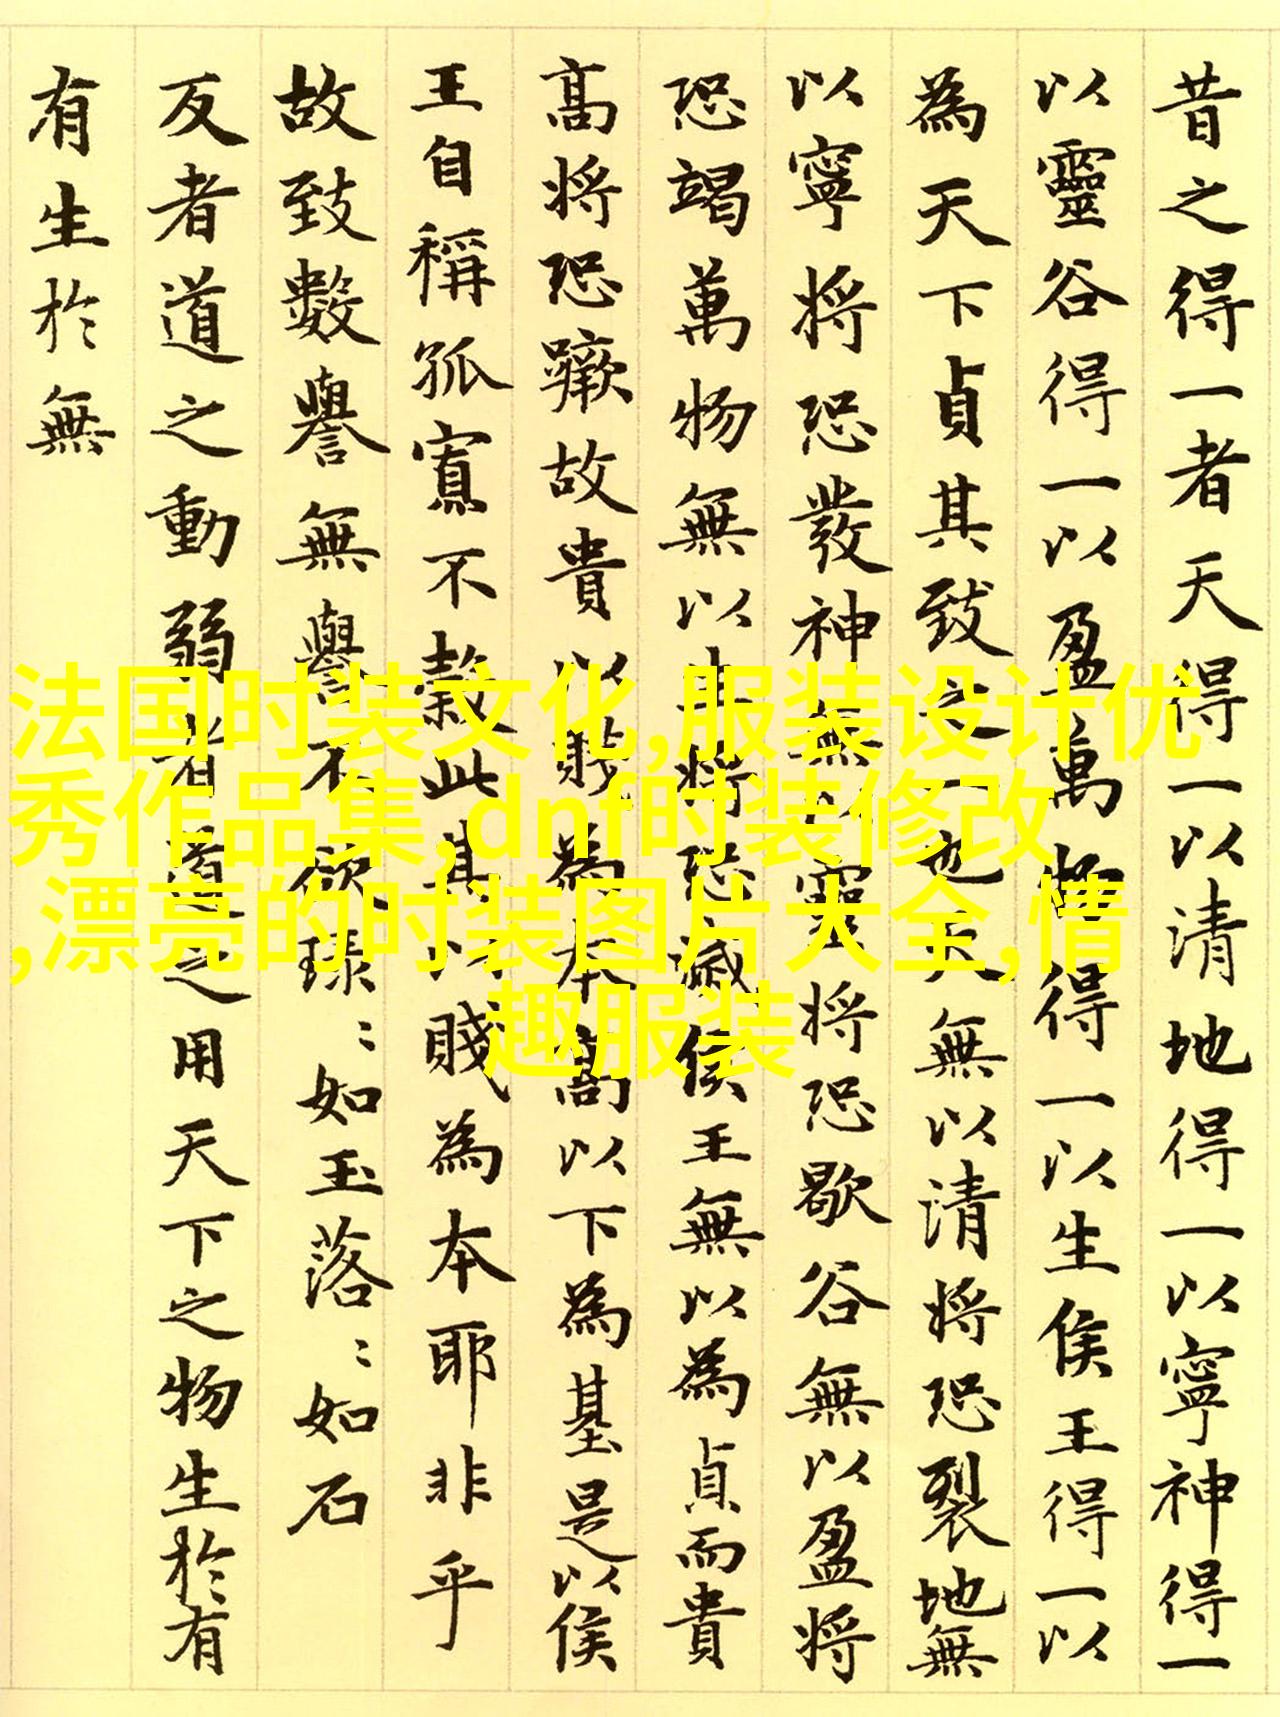 昔之得一者天得一以清地得一以寧神得一
以靈谷得一以盈萬物得一以生侯王得一以
為天下貞其致之一也天無以清将恐裂地無
以寧将恐發神無以靈将恐歇谷無以盈将
恐竭萬物無以生将恐滅侯王無以為貞而貴
高将恐蹶故貴以賤為本高以下為基是以侯
王自稱孤寡不穀此其以賤為本耶非乎
故致數譽無譽不欲琭〻如玉落〻如石
反者道之動弱者道之用天下之物生於有
有生於無
法国时装文化,服装设计优
秀作品集,dnf时装修改
,漂亮的时装图片大全,情
趣服装